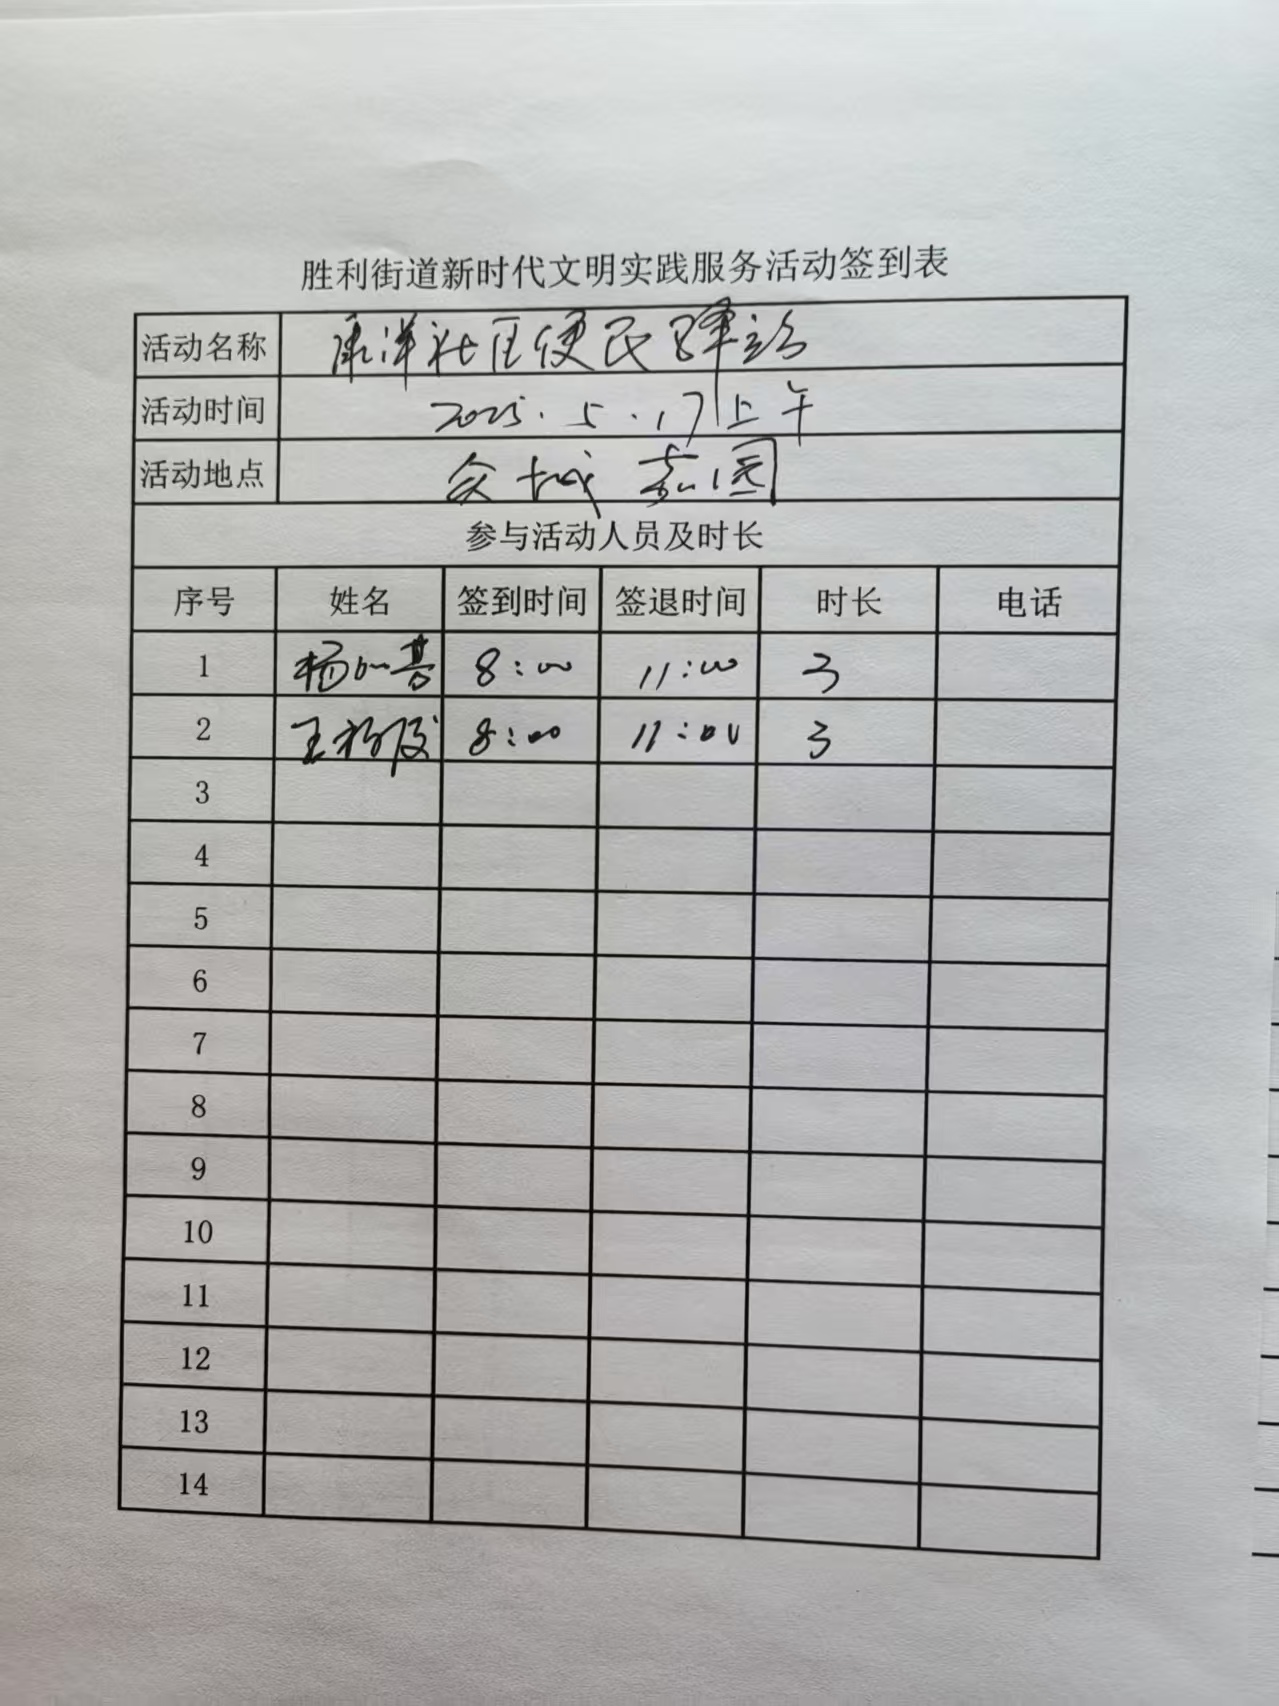 胜利街道新时代文明实践服务活动签到表
活动名称 康洋社区便民驿站
活动时间 2025.5.17上午
活动地点 众城嘉园
参与活动人员及时长
序号 姓名 签到时间 签退时间 时长 电话
1 杨 8:00 11:00 3
2 王 8:00 11:00 3
3
4
5
6
7
8
9
10
11
12
13
14